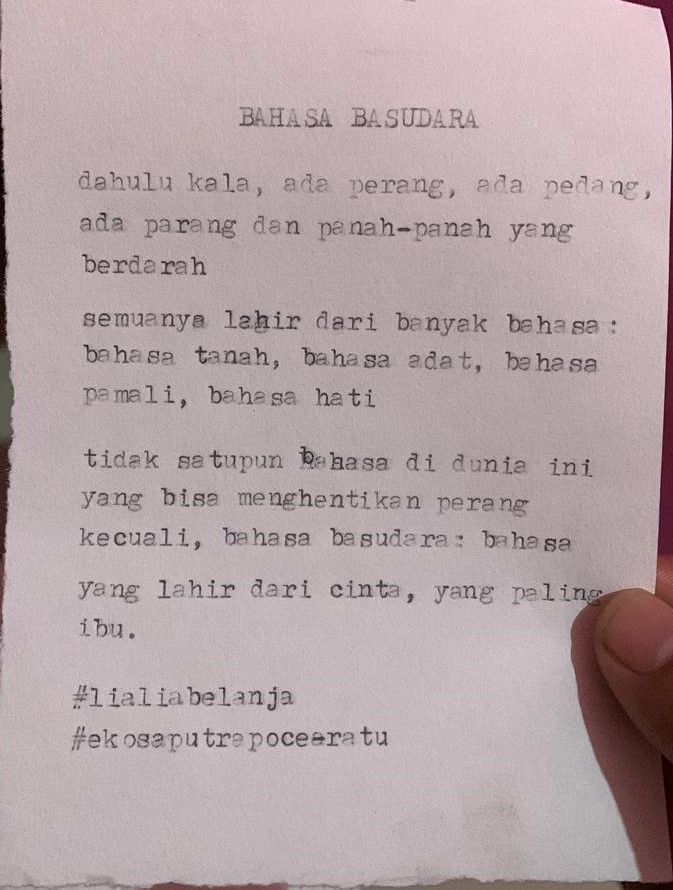 BAHASA BASUDARA
dahulu kala, ada perang, ada pedang,
ada parang dan panah-panah yang
berdarah
semuanya lahir dari banyak bahasa:
bahasa tanah, bahasa adat, bahasa
pamali, bahasa hati
tidak satupun bahasa di dunia ini
yang bisa menghentikan perang
kecuali, bahasa basudara: bahasa
yang lahir dari cinta, yang paling
ibu.
#lialiabelanja
#ekosaputrapoceratu